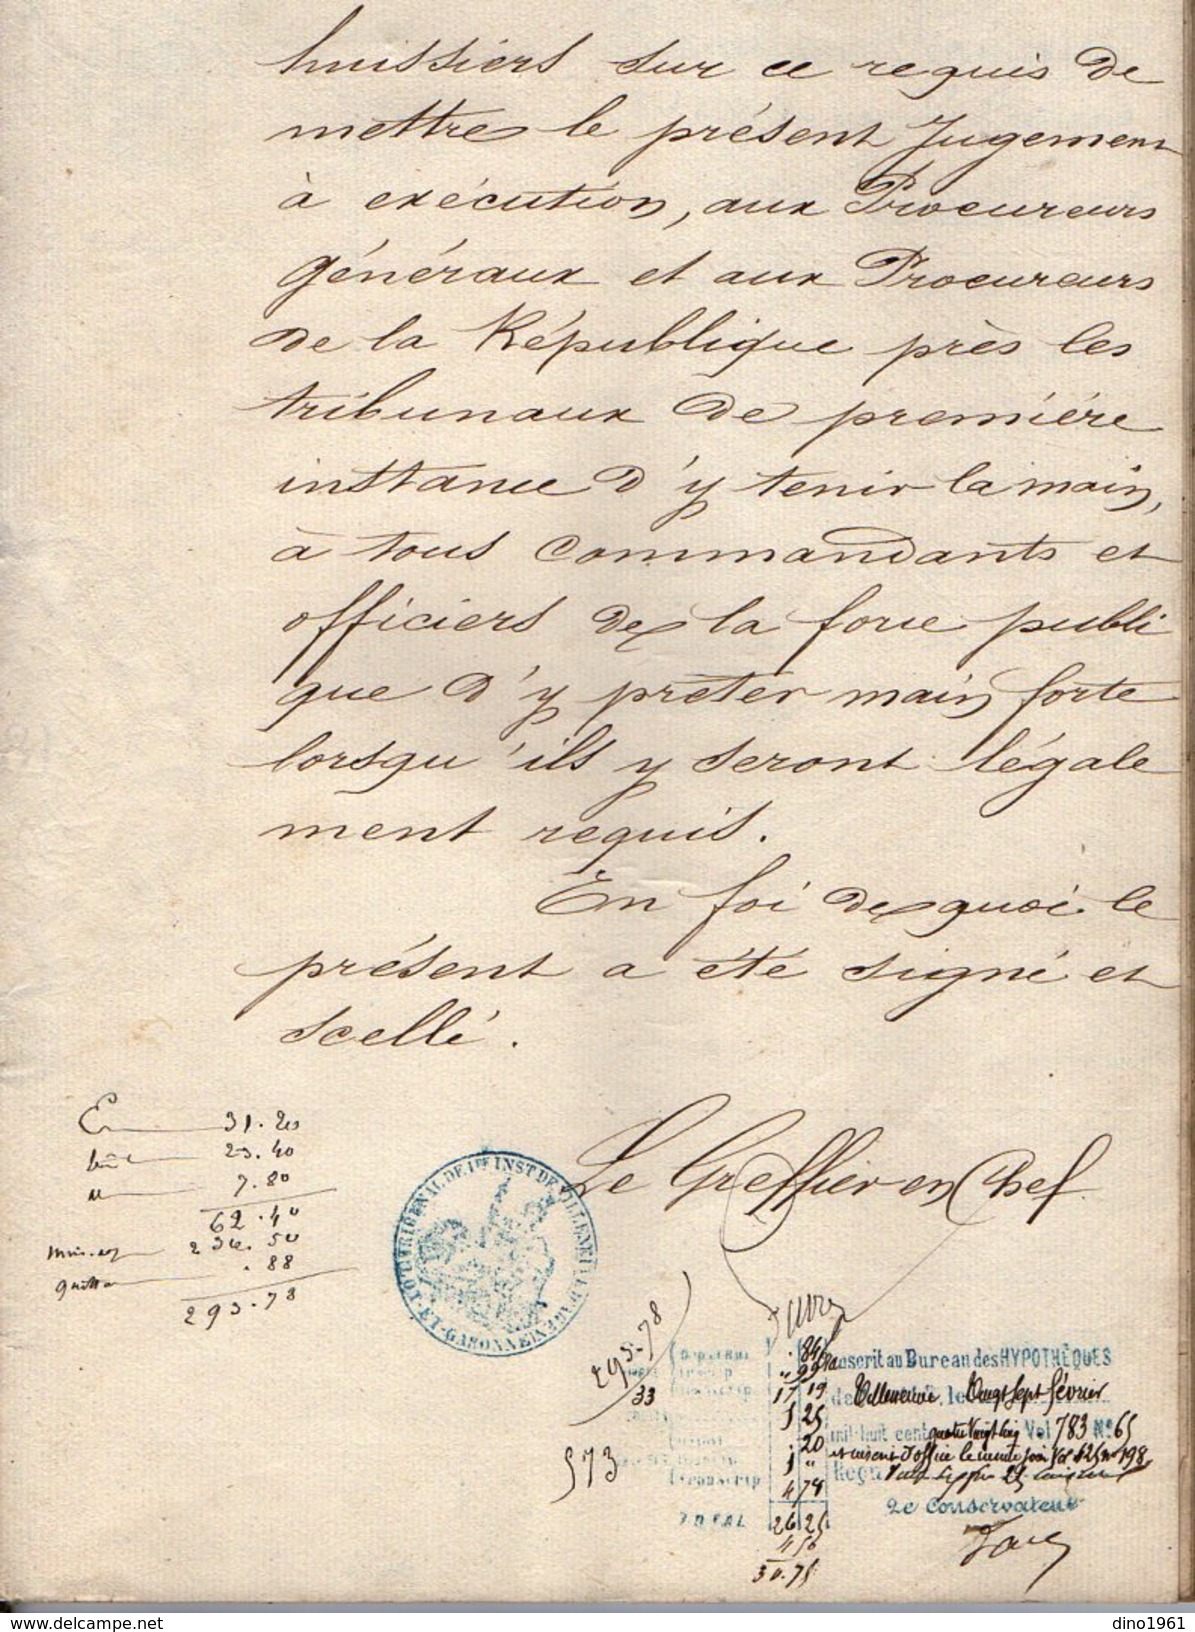 huissiers sur ce requis de
mettre le présent Jugement
à exécution, aux Procureurs
généraux et aux Procureurs
de la République près les
tribunaux de première
instance d'y tenir la main,
à tous Commandants et
officiers de la force publi
que d'y prêter main forte
lorsqu'ils y seront légale
ment requis.
En foi de quoi le
présent a été signé et
scellé.
Le Greffier en Chef
E 31.20
23.40
7.80
62.40
230.50
.88
293.78
TRIBUNAL DE 1RE INST DE VILLENEUVE D'AGEN
LOT-ET-GARONNE
293-78
33
573
84
99
17 19
1 25
.20
1 "
4 78
TOTAL 26 25
4 50
30.75
Transcrit au Bureau des HYPOTHÈQUES
de Villeneuve, le Vingt Sept février
mil huit cent quatre Vingt Vol 783 N° 65
et inscrit d'office le même jour Vol 425 n° 198
Reçu
Le Conservateur
www.delcampe.net
dino1961